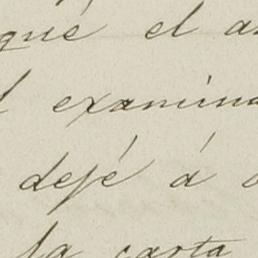 qué el a
examina
dejé á
la carta